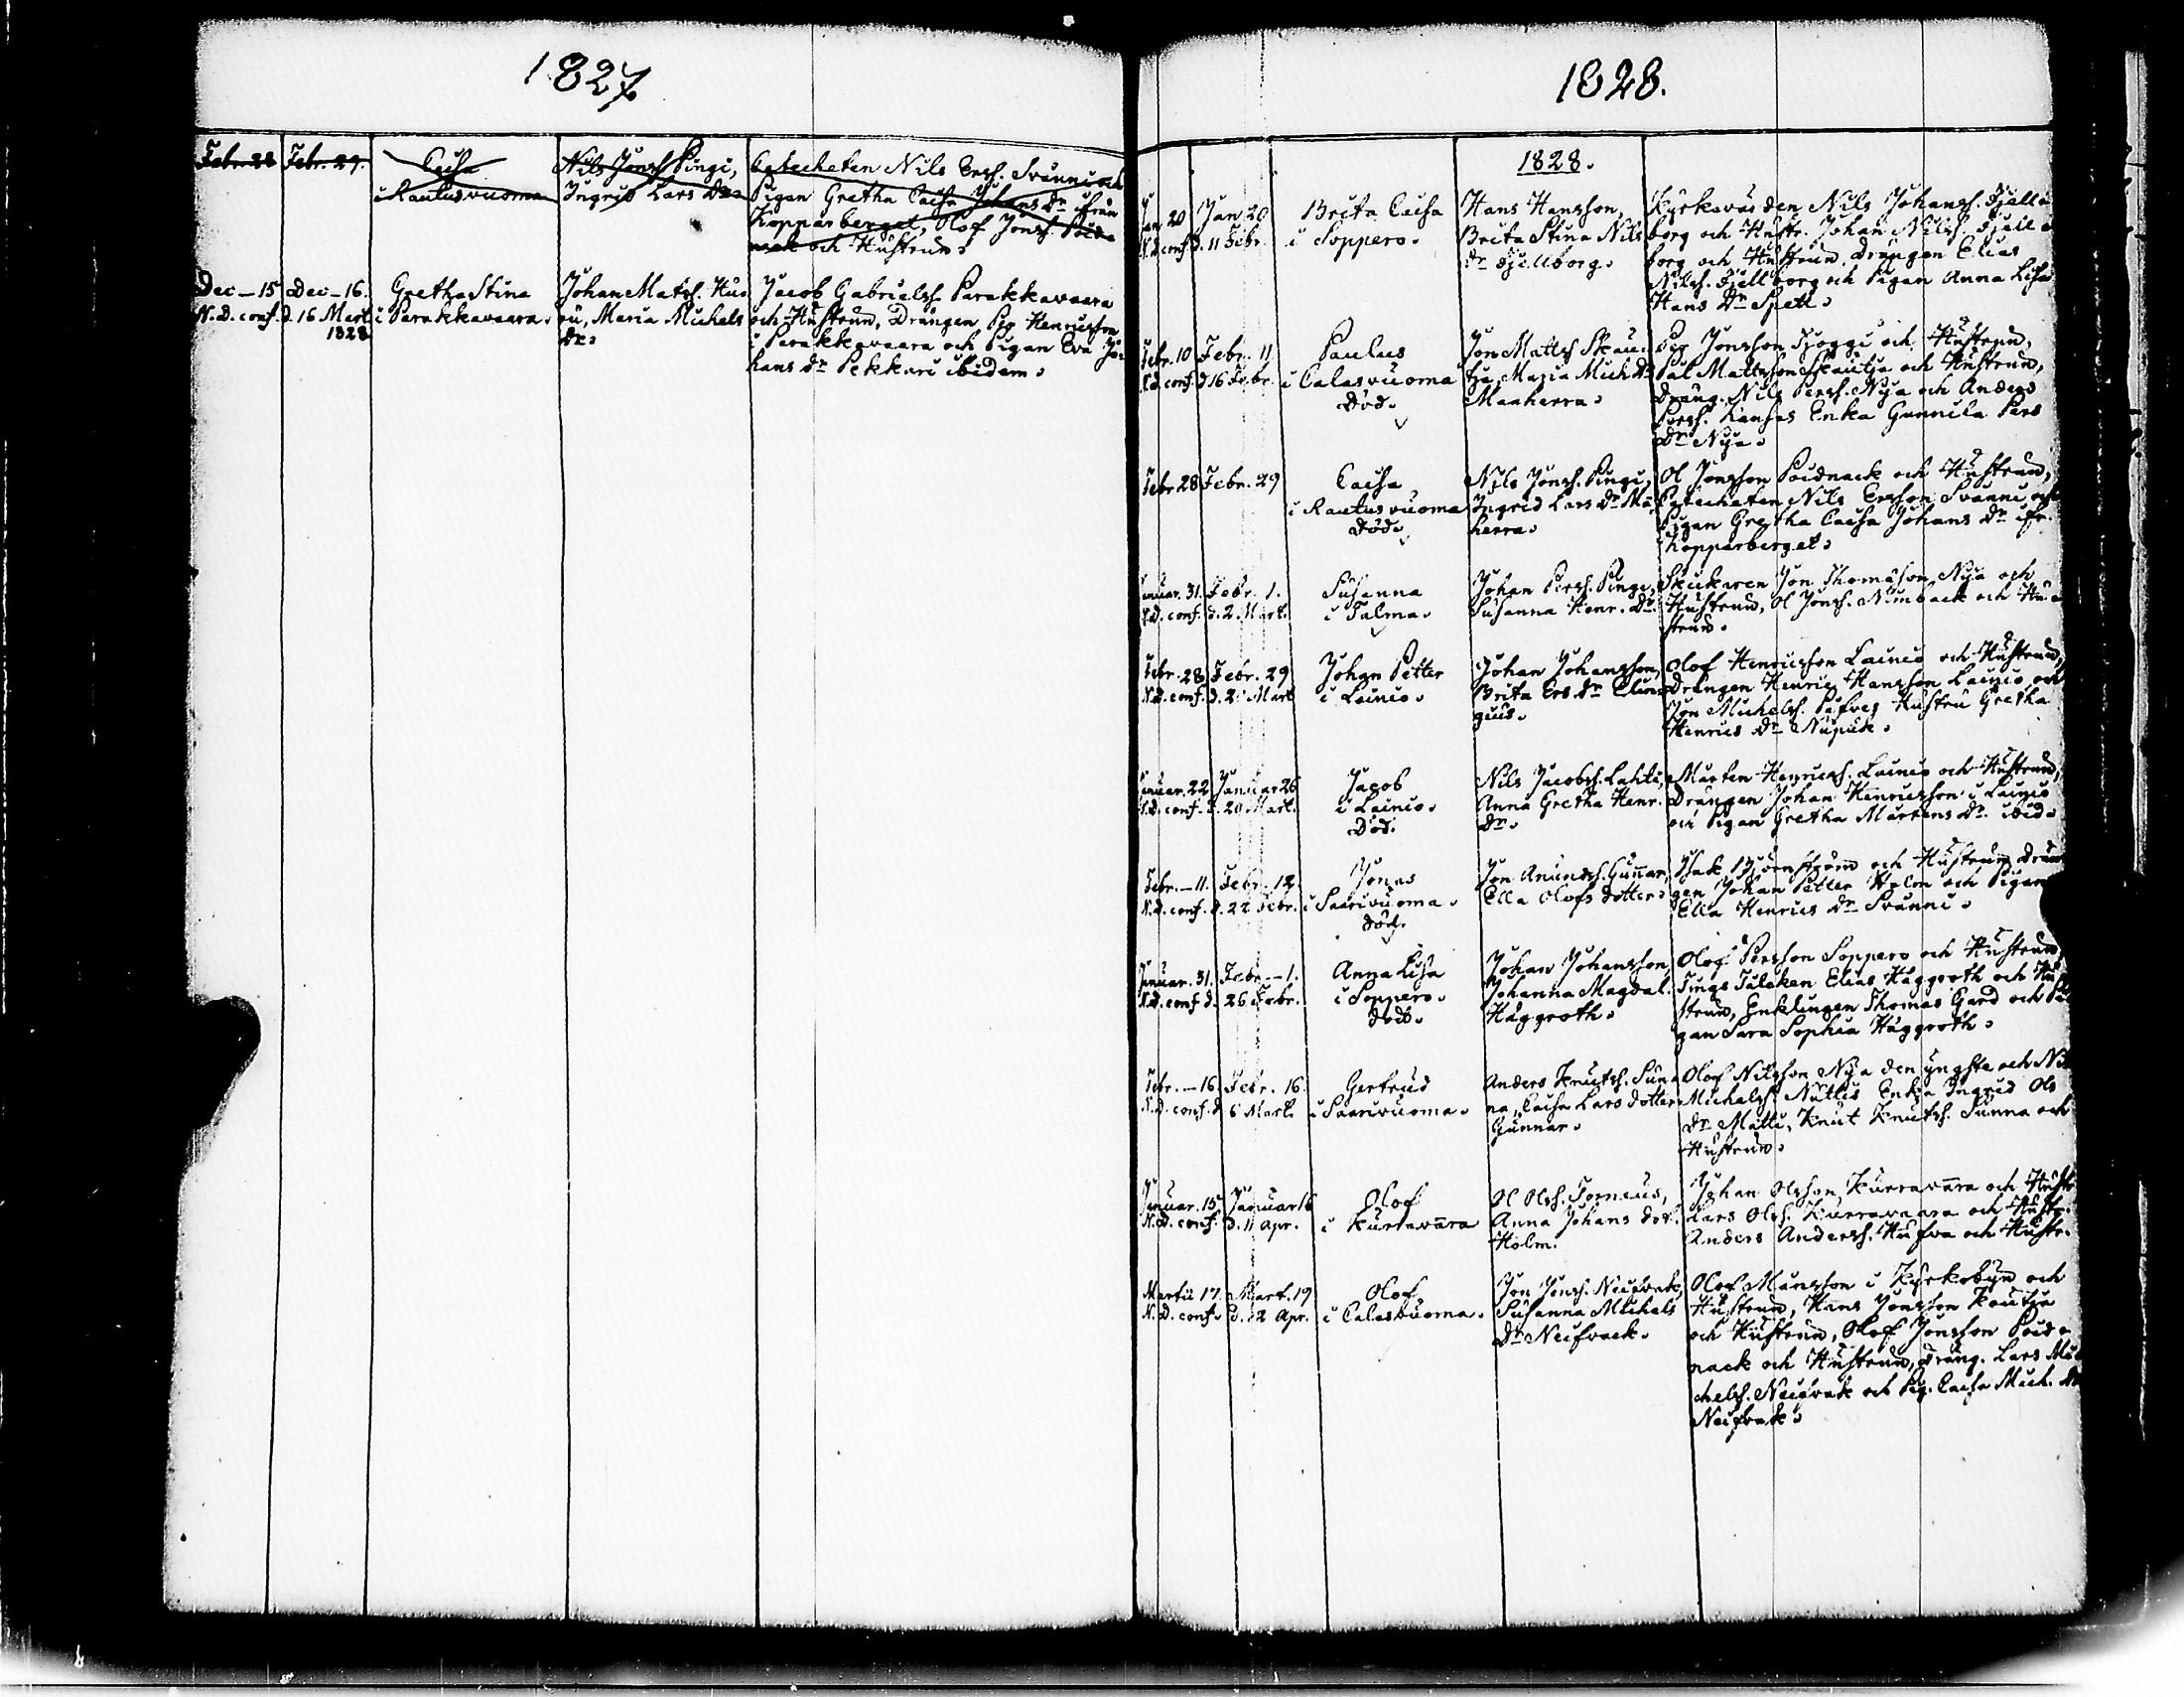 1827
Febr. 28 Febr. 29. Caisa Nils Jonss. Pingi, Catecheten Nils Erss. Svanni och
i Rautusvuoma Ingrid Lars Dr. Pigan Gretha Caisa Johans Dr ifrån
Kopparberget, Olof Jonss. Poid-
nack och Hustrun.
Dec – 15 Dec – 16. Gretha Stina Johan Matss. Hus Jacob Gabrielss. Parakkavaara
N.D. conf. d. 16 Mart. i Parakkavaara. Maria Michels och Hustrun, Drängen Henricsson
1828 Dr. i Parakkavaara och Pigan Eva Jo-
hans Dr Pekkari ibidem.
1828.
1828.
Jan 20 Jan 20 Brita Caisa Hans Hansson, Kyrkovärden Nils Johanss. Fjell-
N.D. conf. d. 11 Febr. i Soppero. Brita Stina Nils borg och Hustr. Johan Nilss. Fjell-
Dr Fjellborg. borg och Hustrun, Drängen Elias
Nilss. Fjellborg och Pigan Anna Lisa
Hans Dr Spett.
Febr. 10 Febr. 11 Paulus Jon Matts Skau- Jonsson Sjoggi och Hustrun,
N.D. conf. d 16 Febr. i Calasvuoma tja, Maria Mich Dr Pål Mattsson Skautja och Hustrun,
Död. Maaherra. Dräng. Nils Perss. Nya och Anders
Perss. Enka Gunnila Pers
Dr Nya.
Febr 28 Febr. 29 Caisa Nils Jonss. Pingi, Ol Jonsson Poidnack och Hustrun,
i Rautusvuoma Ingrid Lars Dr Ma- Catecheten Nils Ersson Svanni och
Död. herra. Pigan Gretha Caisa Johans Dr ifr.
Kopparberget.
Januar. 31. Febr. 1. Susanna Johan Perss. Pingi, Jon Thomasson Nya och
N.D. conf. d. 2. Mart. i Talma. Susanna Henr. Dr. Hustrun, Ol Jonss. Nimback och Hu-
strun.
Febr. 28 Febr. 29 Johan Petter Johan Johansson, Olof Henricsson Lainio och Hustrun,
N.D. conf. d. 2 Mart i Lainio. Brita Ers Dr Drängen Henric Hansson Lainio och
Jon Michelss. Hustru Gretha
Henrics Dr
Januar. 22 Januar 26 Jacob Nils Jacobss. Lahti, Mårten Henricss. Lainio och Hustrun,
N.D. conf. d. 20 Mart. i Lainio. Anna Gretha Henr. Drängen Johan Henricsson i Lainio
Död. Dr. och Pigan Gretha Mårtens Dr. ibid.
Febr. – 11. Febr. 12. Jonas Jon Amundss. Gunnar, Isak Björnström och Hustrun, Drän-
N.D. conf. d. 22 Febr. i Saarivuoma. Ella Olofs dotter. gen Johan Petter Holm och Pigan
död. Ella Henrics Dr Svanni.
Januar. 31. Febr. – 1. Anna Lisa Johan Johansson, Olof Persson Soppero och Hustrun,
N.D. conf d. 26 Febr. i Soppero. Johanna Magdal. Tings Tolcken Elias Häggroth och Hu-
död. Häggroth. strun, Enklingen Thomas Gard och Pi-
gan Sara Sophia Häggroth.
Febr. – 16. Febr. 16. Gertrud Anders Knutss. Sun- Olof Nilsson Nya den yngste och
N.D. conf. d. 6 Mart. i Saarivuoma. na, Caisa Lars dotter Michelss. Nuttis Enka Ingrid Ols
Gunnar. Dr Matti, Knut Knutss. Sunna och
Hustrun.
Januar. 15 Januar 16 Olof Ol Olss. Torneus, Johan Olsson Kurravara och Hustr.
N.D. conf. d. 11 Apr. i Kurravara Anna Johans dot. Lars Olss. Kurravaara och Hustr.
Holm. Anders Anderss. Hufva och Hustr.
Martii 17. Mart. 19 Olof Jon Jonss. Neifvak, Olof Månsson i Kyrkobyn och
N.D. conf. d. 12 Apr. i Calasvuoma. Susanna Michels Hustrun, Hans Jonsson Kautja
Dr Neifvack. och Hustrun, Olof Jonsson Poid-
nack och Hustrun, Dräng. Lars Mi-
chelss. Neifvak och Pig. Caisa Mich. Dr
Neifvak.